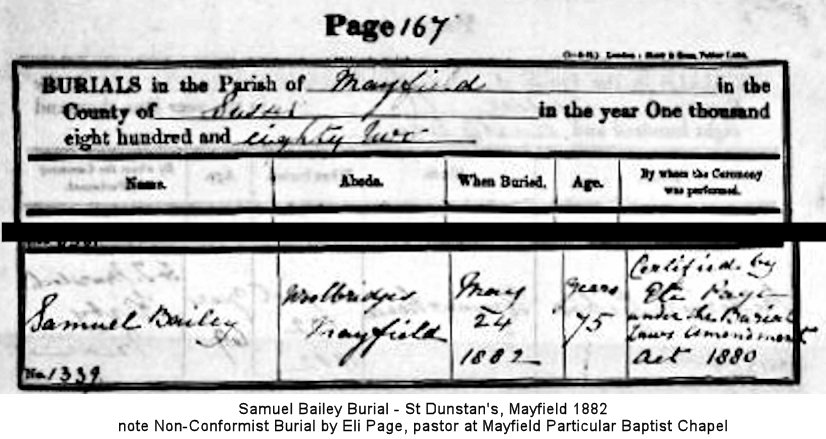 Page 167
BURIALS in the Parish of Mayfield in the
County of Sussex in the year One thousand
eight hundred and eighty two
Name. Abode. When Buried. Age. By whom the Ceremony was performed.
Samuel Bailey
No. 1339.
Woolbridges
Mayfield
May
24
1882
years
75
Certified by
Eli Page
under the Burial
Laws Amendment
Act 1880
Samuel Bailey Burial - St Dunstan's, Mayfield 1882
note Non-Conformist Burial by Eli Page, pastor at Mayfield Particular Baptist Chapel